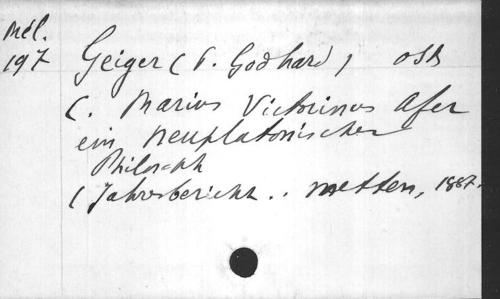 Mél.
197
Geiger (P. Godhard) OSB
C. Marius Victorinus Afer
ein Neuplatonischer
Philosoph
(Jahresbericht .. Metten, 1887.